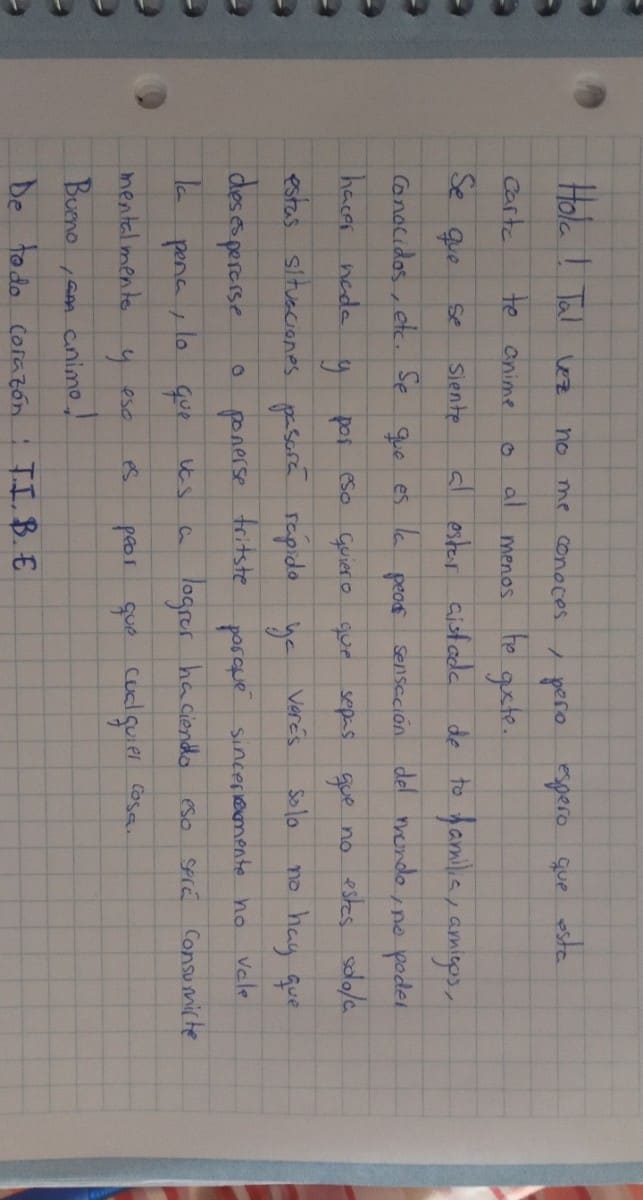 Hola! Tal vez no me conoces, pero espero que esta
carta te anime o al menos te guste.
Se que se siente al estar aislada de to familia, amigos,
conocidos, etc. Se que es la peor sensación del mundo, no poder
hacer nada y por eso quiero que sepas que no estas solo/a
estas situaciones pasará rápido ya verás solo no hay que
desesperarse o ponerse tritste porqué sinceramente no vale
la pena, lo que vas a lograr haciendo eso será consumirte
mentalmente y eso es peor que cualquier cosa.
Bueno, animo!
De todo corazón: T.I.B.E